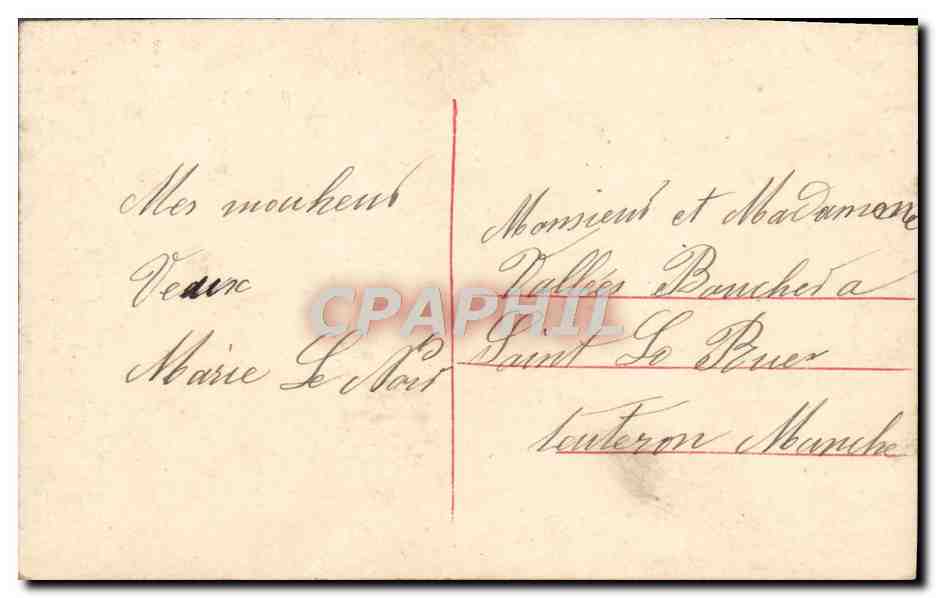 Mes mouheur
Veaux
Marie Le Noir
Monsieur et Madamone
Vallées Boucher a
Saint Lo Ruer
touteron Manche
CPAPHIL